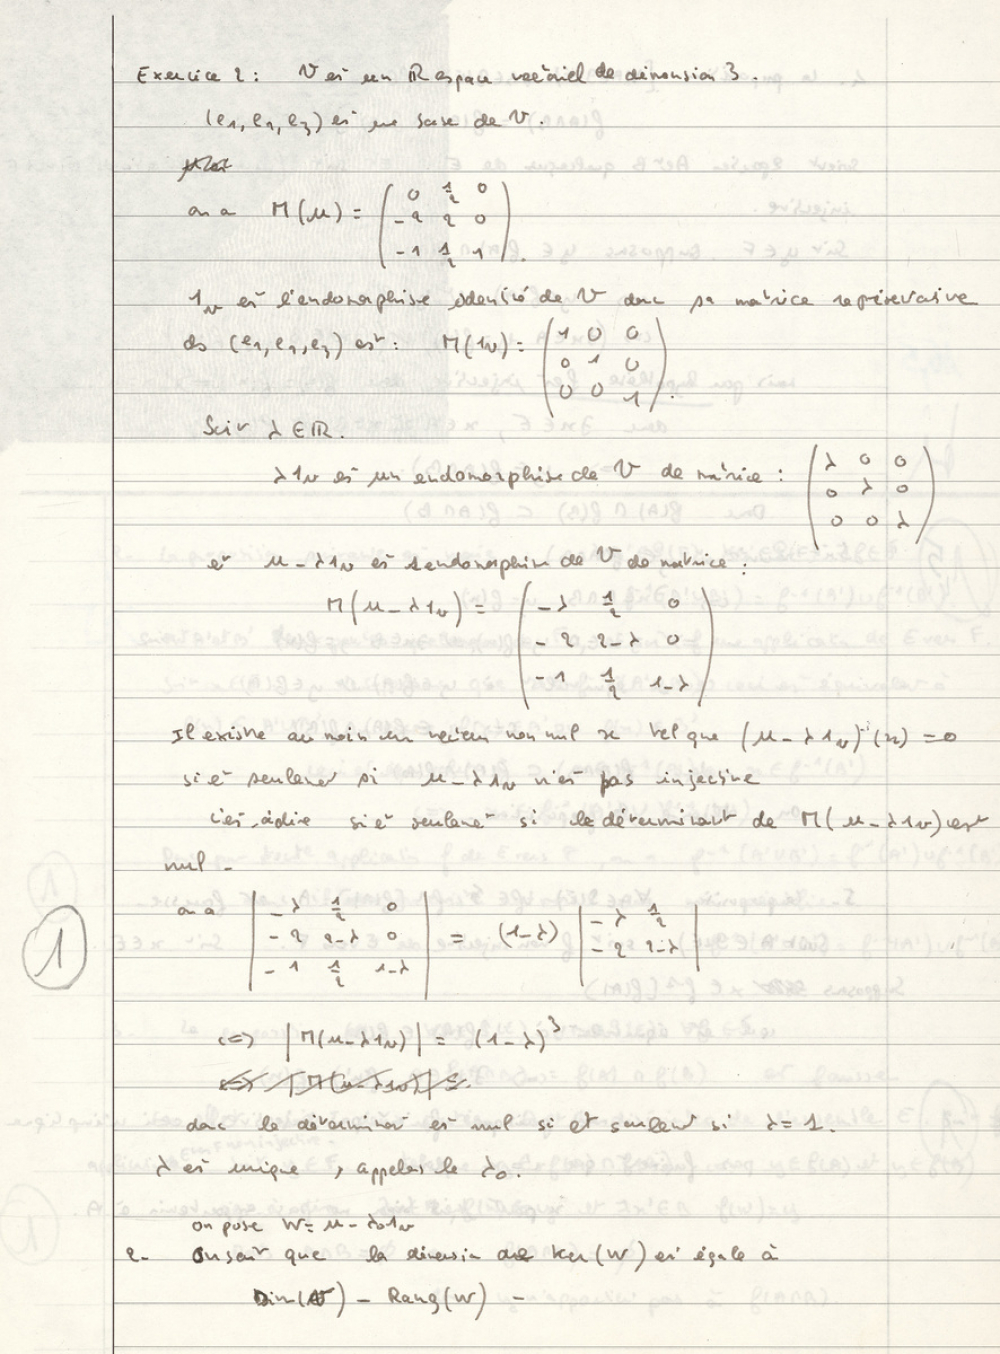 Exercice 2 : V est un R espace vectoriel de dimension 3.
(e1, e2, e3) est une base de V.
on a M(u) = ( 0 1/2 0
-2 2 0
-1 1/2 1 ).
1v est l'endomorphisme identité de V donc sa matrice représentative
ds (e1, e2, e3) est : M(1v) = ( 1 0 0
0 1 0
0 0 1 ).
Soit λ ∈ R.
λ1v est un endomorphisme de V de matrice : ( λ 0 0
0 λ 0
0 0 λ )
et u - λ1v est 1 endomorphisme de V de matrice :
M(u - λ1v) = ( -λ 1/2 0
-2 2-λ 0
-1 1/2 1-λ )
Il existe au moins un vecteur non nul x tel que (u - λ1v)(x) = 0
si et seulement si u - λ1v n'est pas injective
c'est à dire si et seulement si le déterminant de M(u - λ1v) est
nul -
on a | -λ 1/2 0
-2 2-λ 0
-1 1/2 1-λ | = (1-λ) | -λ 1/2
-2 2-λ |
1
<=> |M(u - λ1v)| = (1-λ)^3
<=> |M(u - λ1v)| =
donc le déterminant est nul si et seulement si λ = 1.
λ est unique, appelons le λ0.
on pose W = u - λ01v
2- On sait que la dimension de Ker(W) est égale à
Dim(V) - Rang(W) -